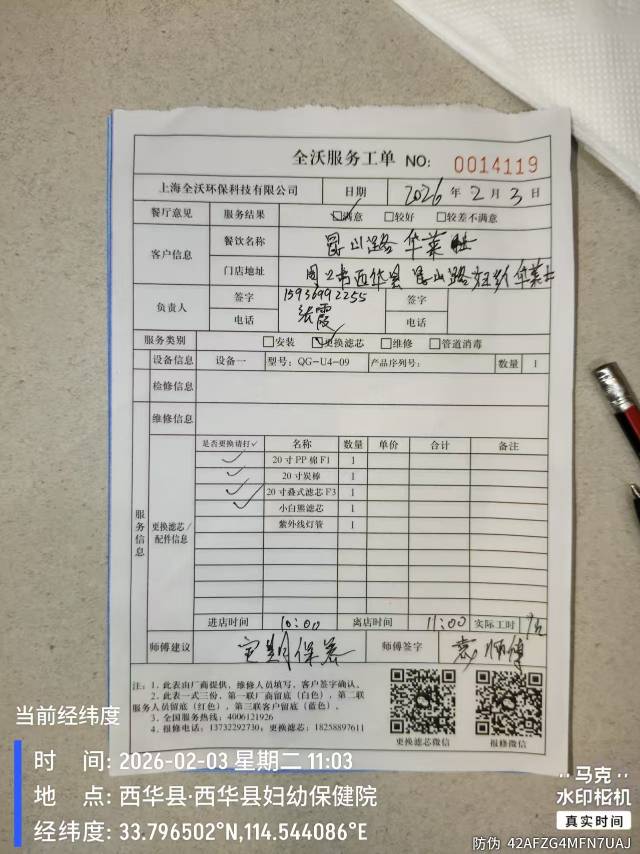 全沃服务工单 NO: 0014119
上海全沃环保科技有限公司 日期 2026年2月3日
餐厅意见 服务结果 ☑满意 ☐较好 ☐较差不满意
客户信息 餐饮名称 昆山路华莱士
门店地址 周口市西华县昆山路 华莱士
负责人 签字 15936992255 签字
电话 张霞 电话
服务类别 ☐安装 ☑更换滤芯 ☐维修 ☐管道消毒
设备信息 设备一 型号: QG-U4-09 产品序列号: 数量 1
检修信息
维修信息
服务信息 更换滤芯/配件信息
是否更换请打✓ 名称 数量 单价 合计 备注
✓ 20寸PP棉F1 1
✓ 20寸炭棒 1
✓ 20寸叠式滤芯F3 1
✓ 小白熊滤芯 1
紫外线灯管 1
进店时间 10:00 离店时间 11:00 实际工时
师傅建议 定期保养 师傅签字 袁师傅
注: 1. 此表由厂商提供,维修人员填写,客户签字确认。
2. 此表一式三份,第一联厂商留底(白色),第二联
服务人员留底(红色),第三联客户留底(蓝色)。
3. 全国服务热线: 4006121926
4. 报修电话: 13732292730; 更换滤芯: 18258897611
更换滤芯微信 报修微信
当前经纬度
时 间: 2026-02-03 星期二 11:03
地 点: 西华县·西华县妇幼保健院
经纬度: 33.796502°N,114.544086°E
马克
水印相机
真实时间
防伪 42AFZG4MFN7UAJ